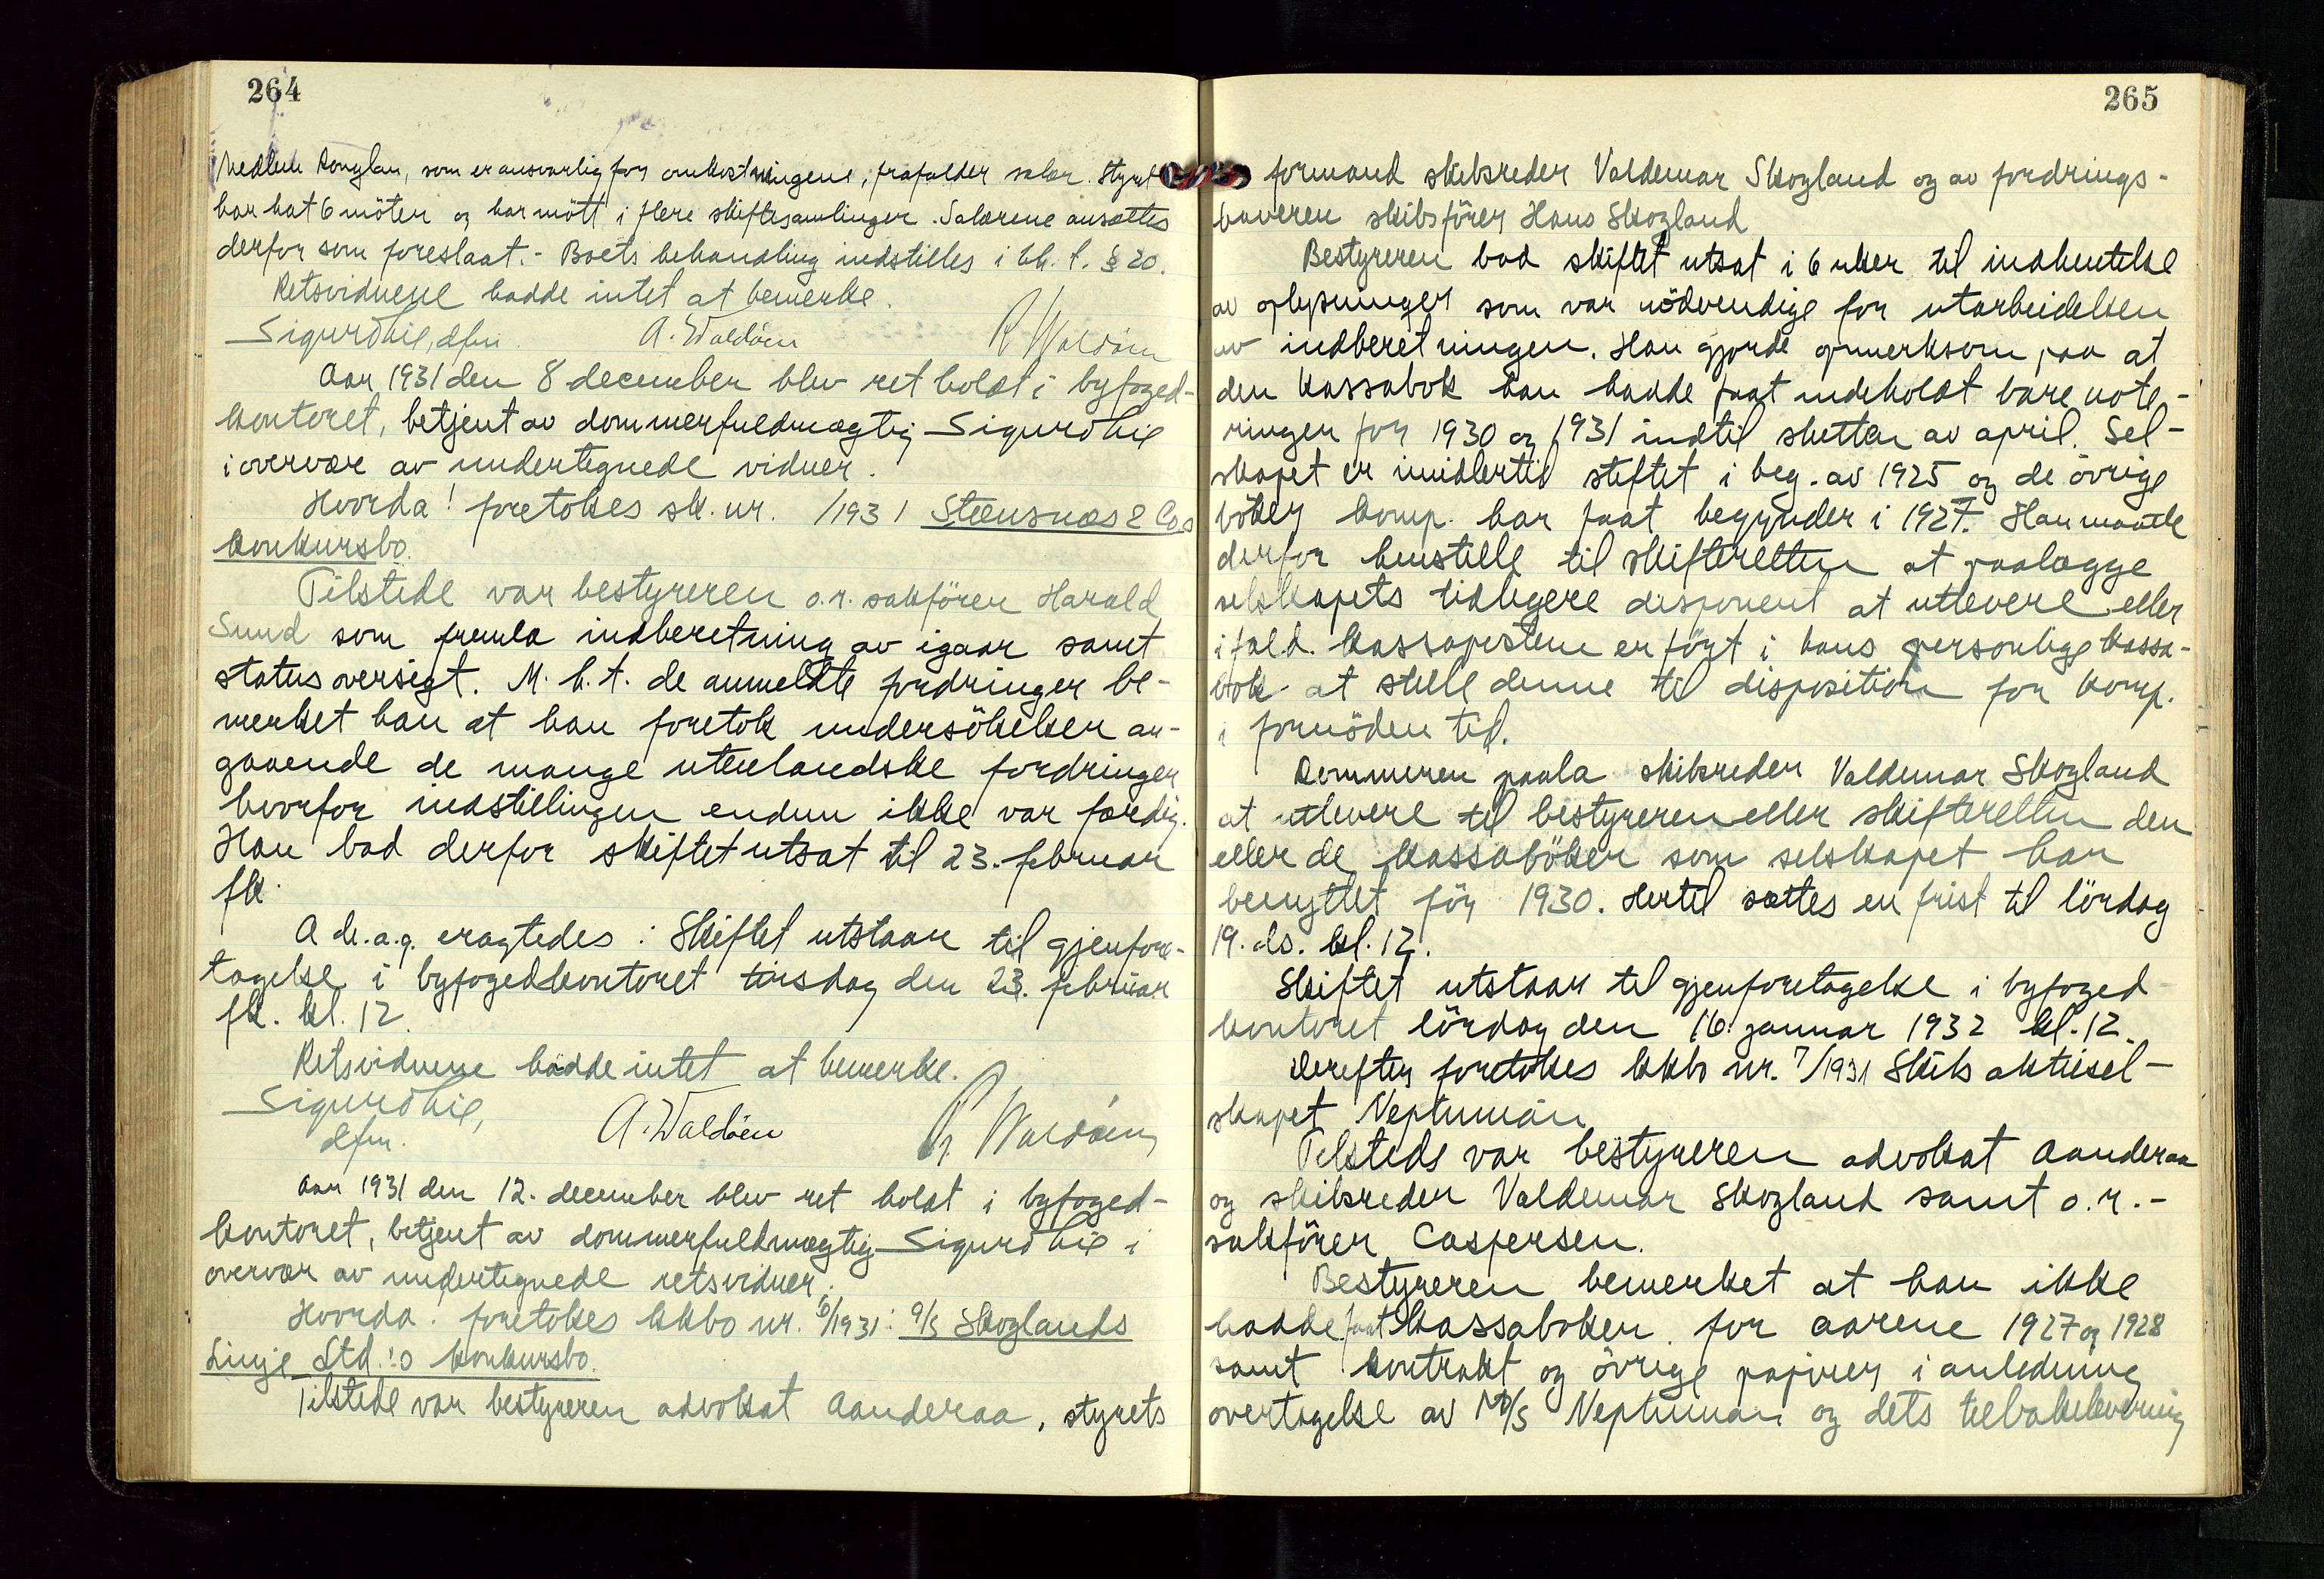 264
Medlem Konglau, som er ansvarlig for omkostningene, frafalder salær. Styret
har hat 6 möter og har mött i flere skiftesamlinger. Salærene ansættes
derfor som foreslaat. - Boets behandling indstilles i h.t. § 20.
Retsvidnene hadde intet at bemerke.
Sigurd Lie, dfm. A. Waldöen R Waldöen
Aar 1931 den 8 december blev ret holdt i byfoged-
kontoret, betjent av dommerfuldmægtig Sigurd Lie
i overvær av undertegnede vidner.
Hvorda! foretokes sk. nr. /1931 Steensnæs & Co.s
konkursbo.
Tilstede var bestyreren o.r. sakförer Harald
Sund som fremla indberetning av igaar samt
status oversigt. M.h.t. de anmeldte fordringer be-
merket han at han foretok undersökelser an-
gaaende de mange utenlandske fordringer
hvorfor indstillingen endnu ikke var færdig.
Han bad derfor skiftet utsat til 23. februar
fk.
A de.a.g. eragtedes: Skiftet utstaar til gjenfore-
tagelse i byfogedkontoret tirsdag den 23. februar
fk. kl. 12.
Retsvidnene hadde intet at bemerke.
Sigurd Lie,
dfm. A. Waldöen R Waldöen
Aar 1931 den 12. december blev ret holdt i byfoged-
kontoret, betjent av dommerfuldmægtig Sigurd Lie i
overvær av undertegnede retsvidner.
Hvorda! foretokes kkbo nr. 6/1931: a/s Skoglands
Linje Ltd.'s konkursbo.
Tilstede var bestyreren advokat Aanderaa, styrets
265
formand skibsreder Valdemar Skogland og av fordrings-
haveren skibsförer Hans Skogland
Bestyreren bad skiftet utsat i 6 uker til indhentelse
av oplysninger som var nödvendige for utarbeidelsen
av indberetningen. Han gjorde opmerksom paa at
den kassabok han hadde faat indeholdt bare note-
ringer for 1930 og 1931 indtil slutten av april. Sel-
skapet er imidlertid stiftet i beg. av 1925 og de övrige
böker komp. har faat begynder i 1927. Han maatte
derfor henstille til skifteretten at paalægge
selskapets tidligere disponent at utlevere eller
ifald kassapostene er fört i hans personlige kassa-
bok at stille denne til disposition for komp.
i fornöden tid.
Dommeren paala skibsreder Valdemar Skogland
at utlevere til bestyreren eller skifteretten den
eller de kassaböker som selskapet har
benyttet för 1930. Hertil sættes en frist til lördag
19. ds. kl. 12.
Skiftet utstaar til gjenforetagelse i byfoged-
kontoret lördag den 16. januar 1932 kl. 12.
Derefter foretokes kkbo nr. 7/1931 Skibsaktiesel-
skapet Neptunian
Tilstede var bestyreren advokat Aanderaa
og skibsreder Valdemar Skogland samt o.r.-
sakförer Caspersen.
Bestyreren bemerket at han ikke
hadde faat kassaboken for aarene 1927 og 1928
samt kontrakt og övrige papirer i anledning
overtagelse av M/S Neptunian og dets tilbakelevering